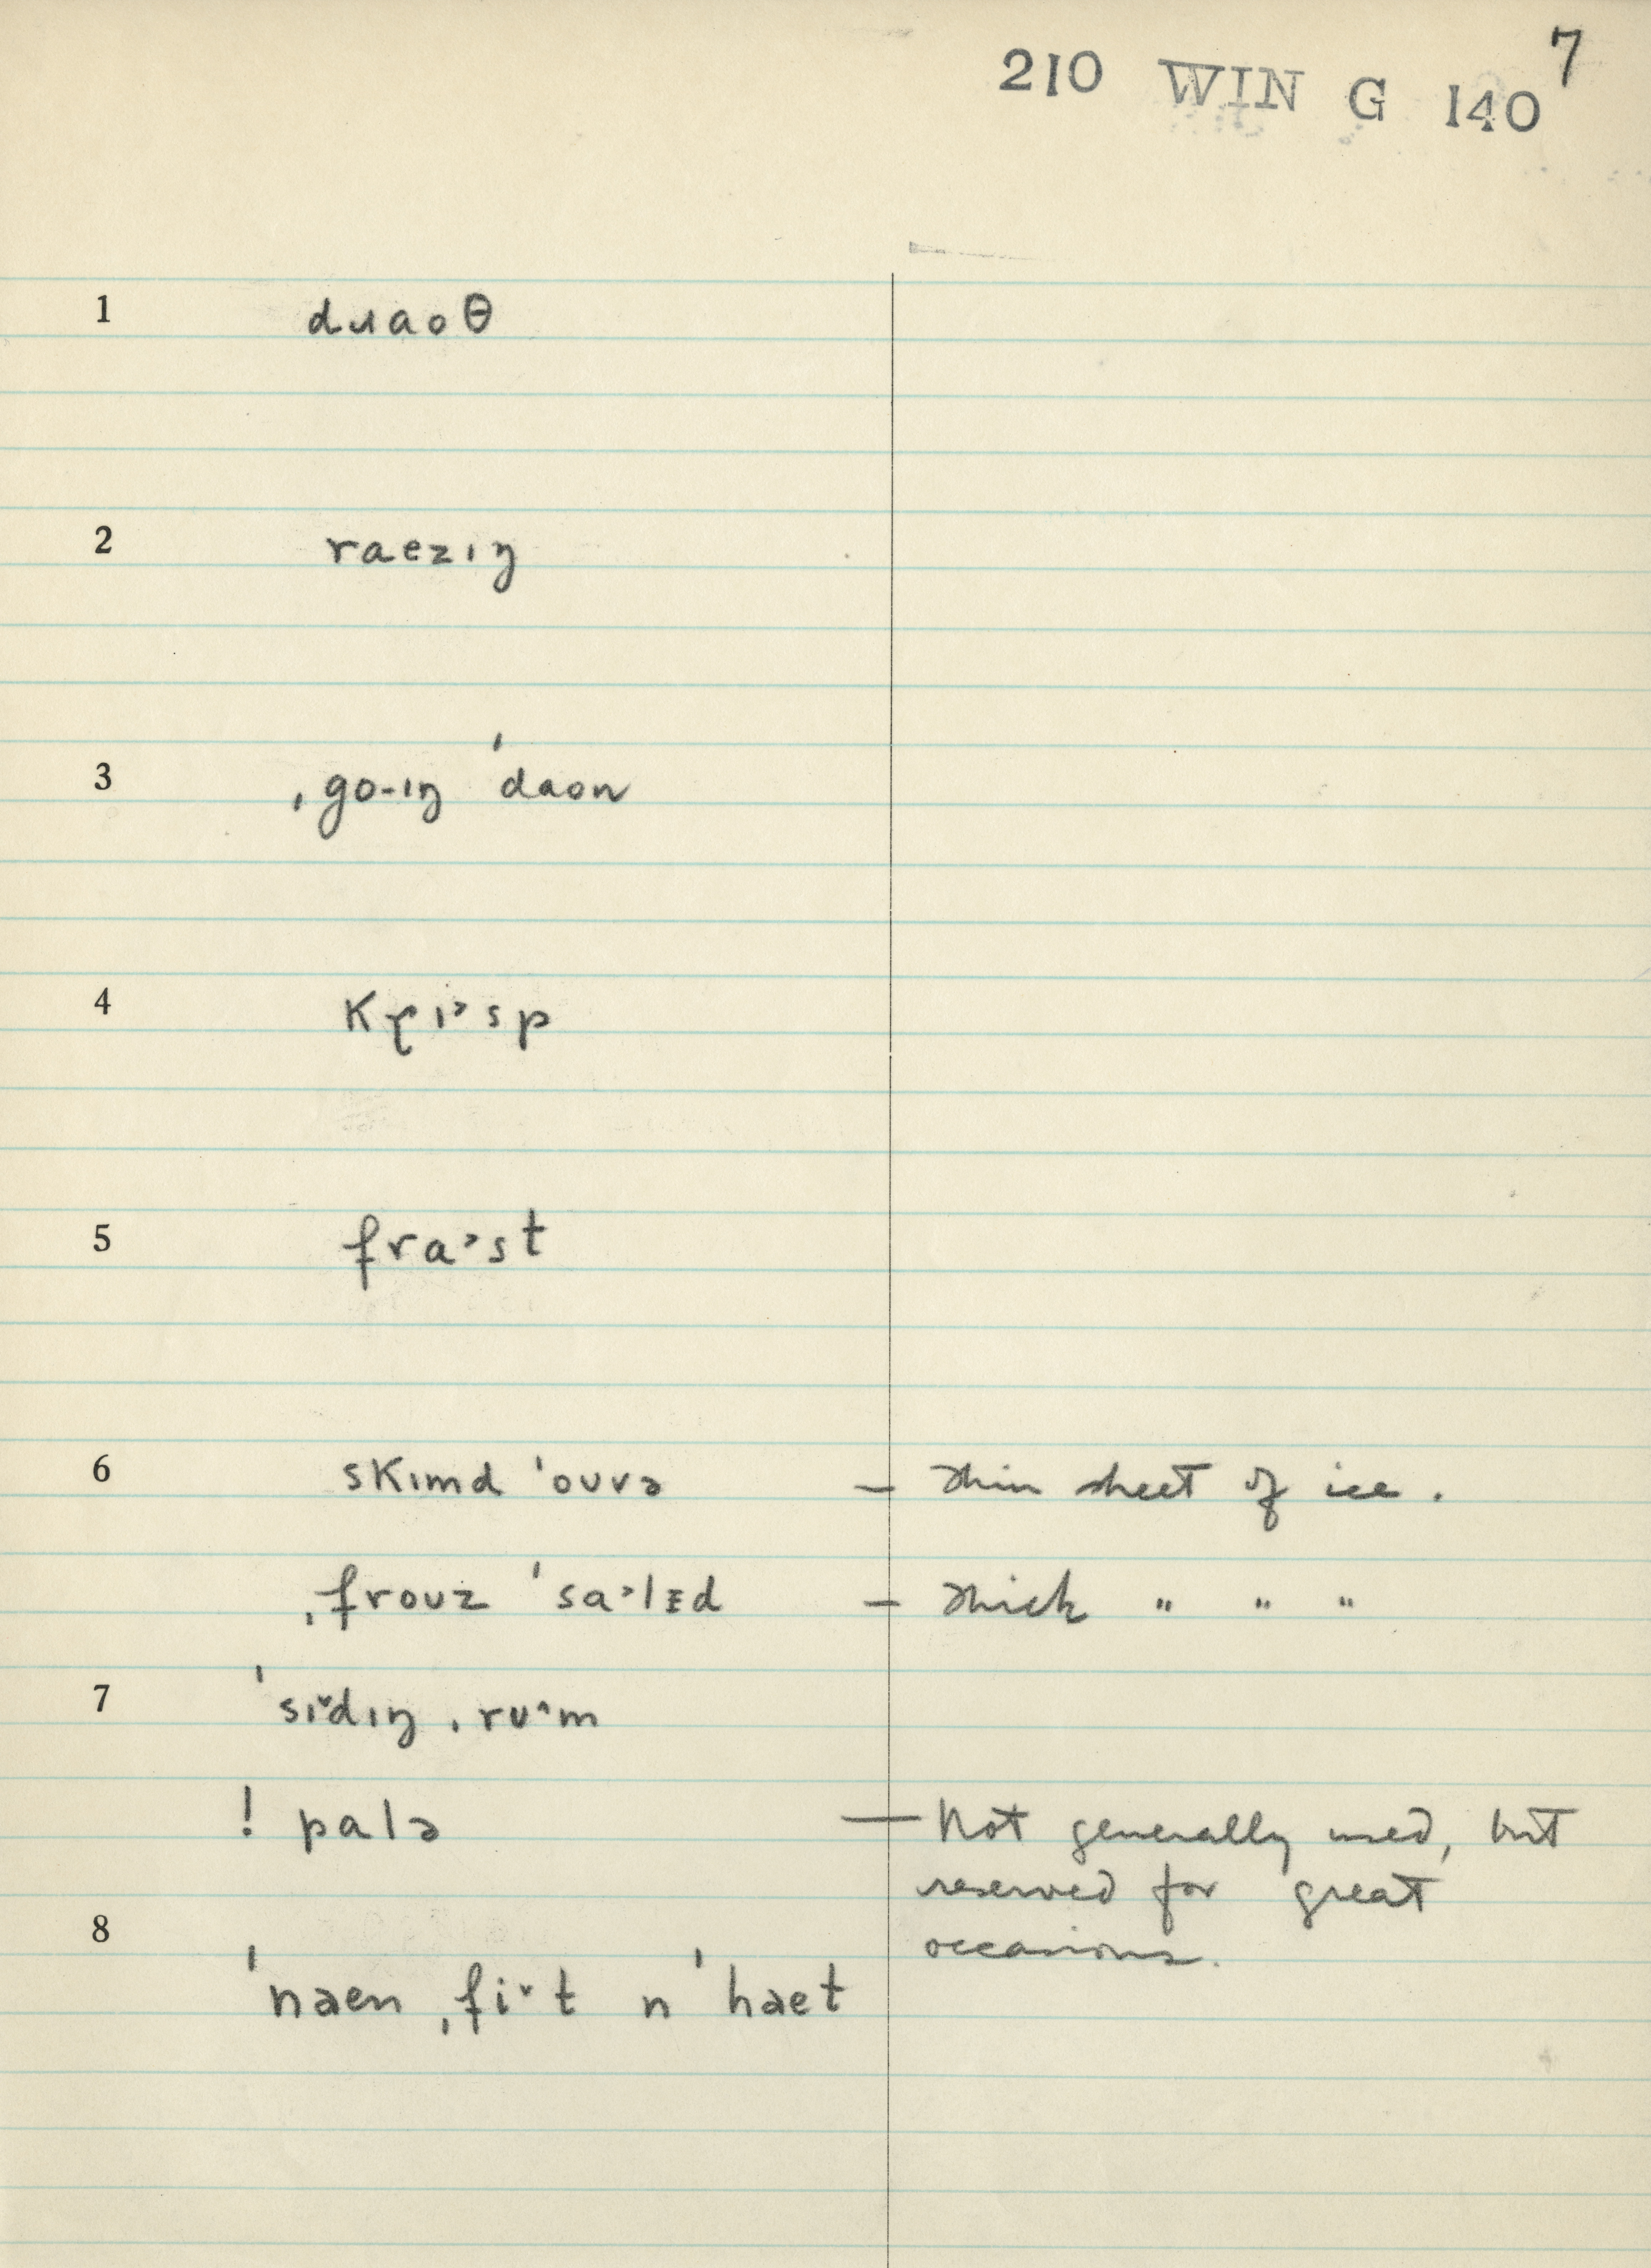 7
210 WIN G 140
1 dɹaoθ
2 raezɪŋ
3 ˌgo-ɪŋ ˈdaon
4 kɽɪ˃sp
5 fra˃st
6 skɪmd ˈoʊvə – thin sheet of ice.
ˌfroʊz ˈsa˃lɪd – thick " " "
7 ˈsɪ˅dɪŋ ˌrʊ˄m
! palə — Not generally used, but
reserved for great
occasions.
8
ˈnaen ˌfi˅t n ˈhaet